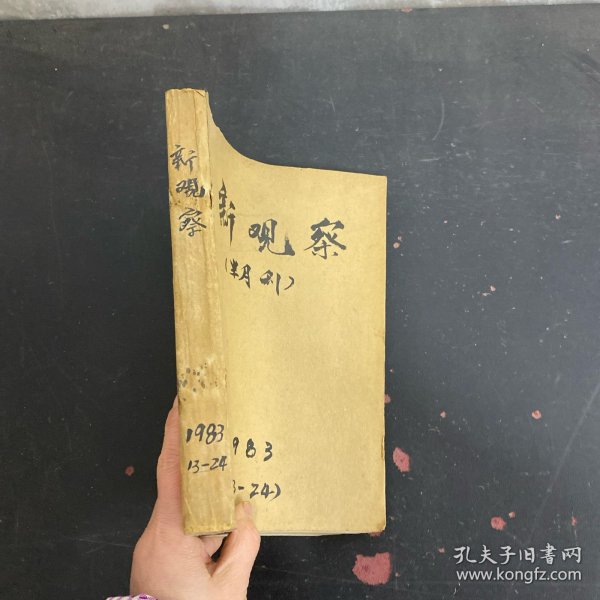 新观察
1983
13-24
新观察
(半月刊)
983
3-24)
孔夫子旧书网
www.kongfz.com